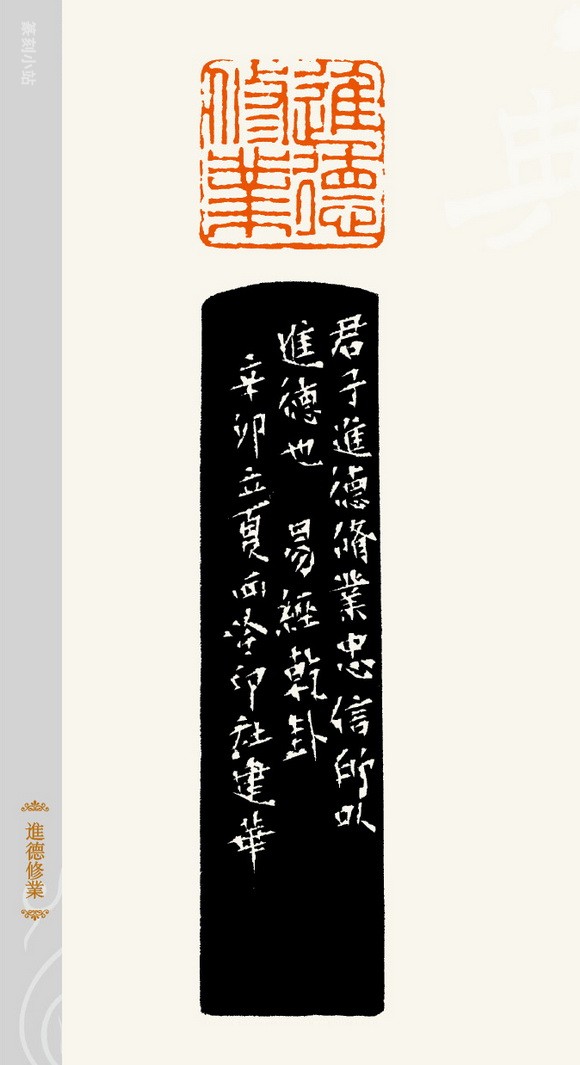 進德修業
君子進德脩業忠信所以
進德也 易經乾卦
辛卯立夏西泠印社建華
篆刻小站
進德修業